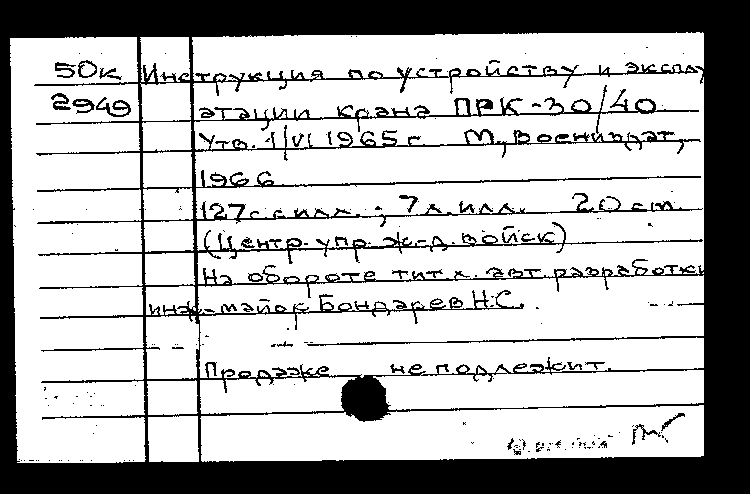 50к Инструкция по устройству и эксплу
2949 атации крана ПРК-30/40.
Утв. 1/VI 1965 г. М., Воениздат,
1966
127 с. с илл.; 7 л. илл. 20 см.
(Центр. упр. ж.-д. войск)
На обороте тит. л. авт. разработки
инж-майор Бондарев Н.С.
Продаже не подлежит.